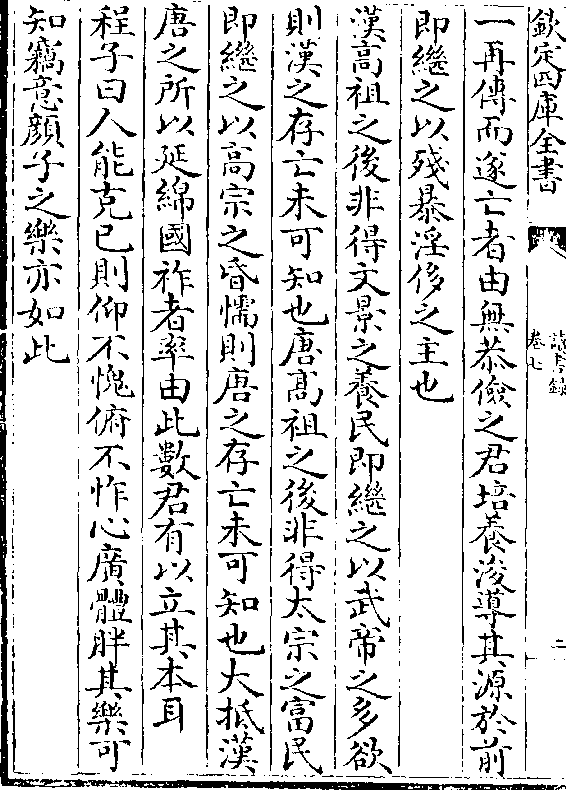 欽定四庫全書
讀書錄
卷七
二
一再傳而遂亡者由無恭儉之君培養浚導其源於前
即繼之以殘暴淫侈之主也
漢高祖之後非得文景之養民即繼之以武帝之多欲
則漢之存亡未可知也唐髙祖之後非得太宗之富民
即繼之以高宗之昏懦則唐之存亡未可知也大抵漢
唐之所以延綿國祚者率由此數君有以立其本耳
程子曰人能克已則仰不愧俯不怍心廣體胖其樂可
知竊意顔子之樂亦如此